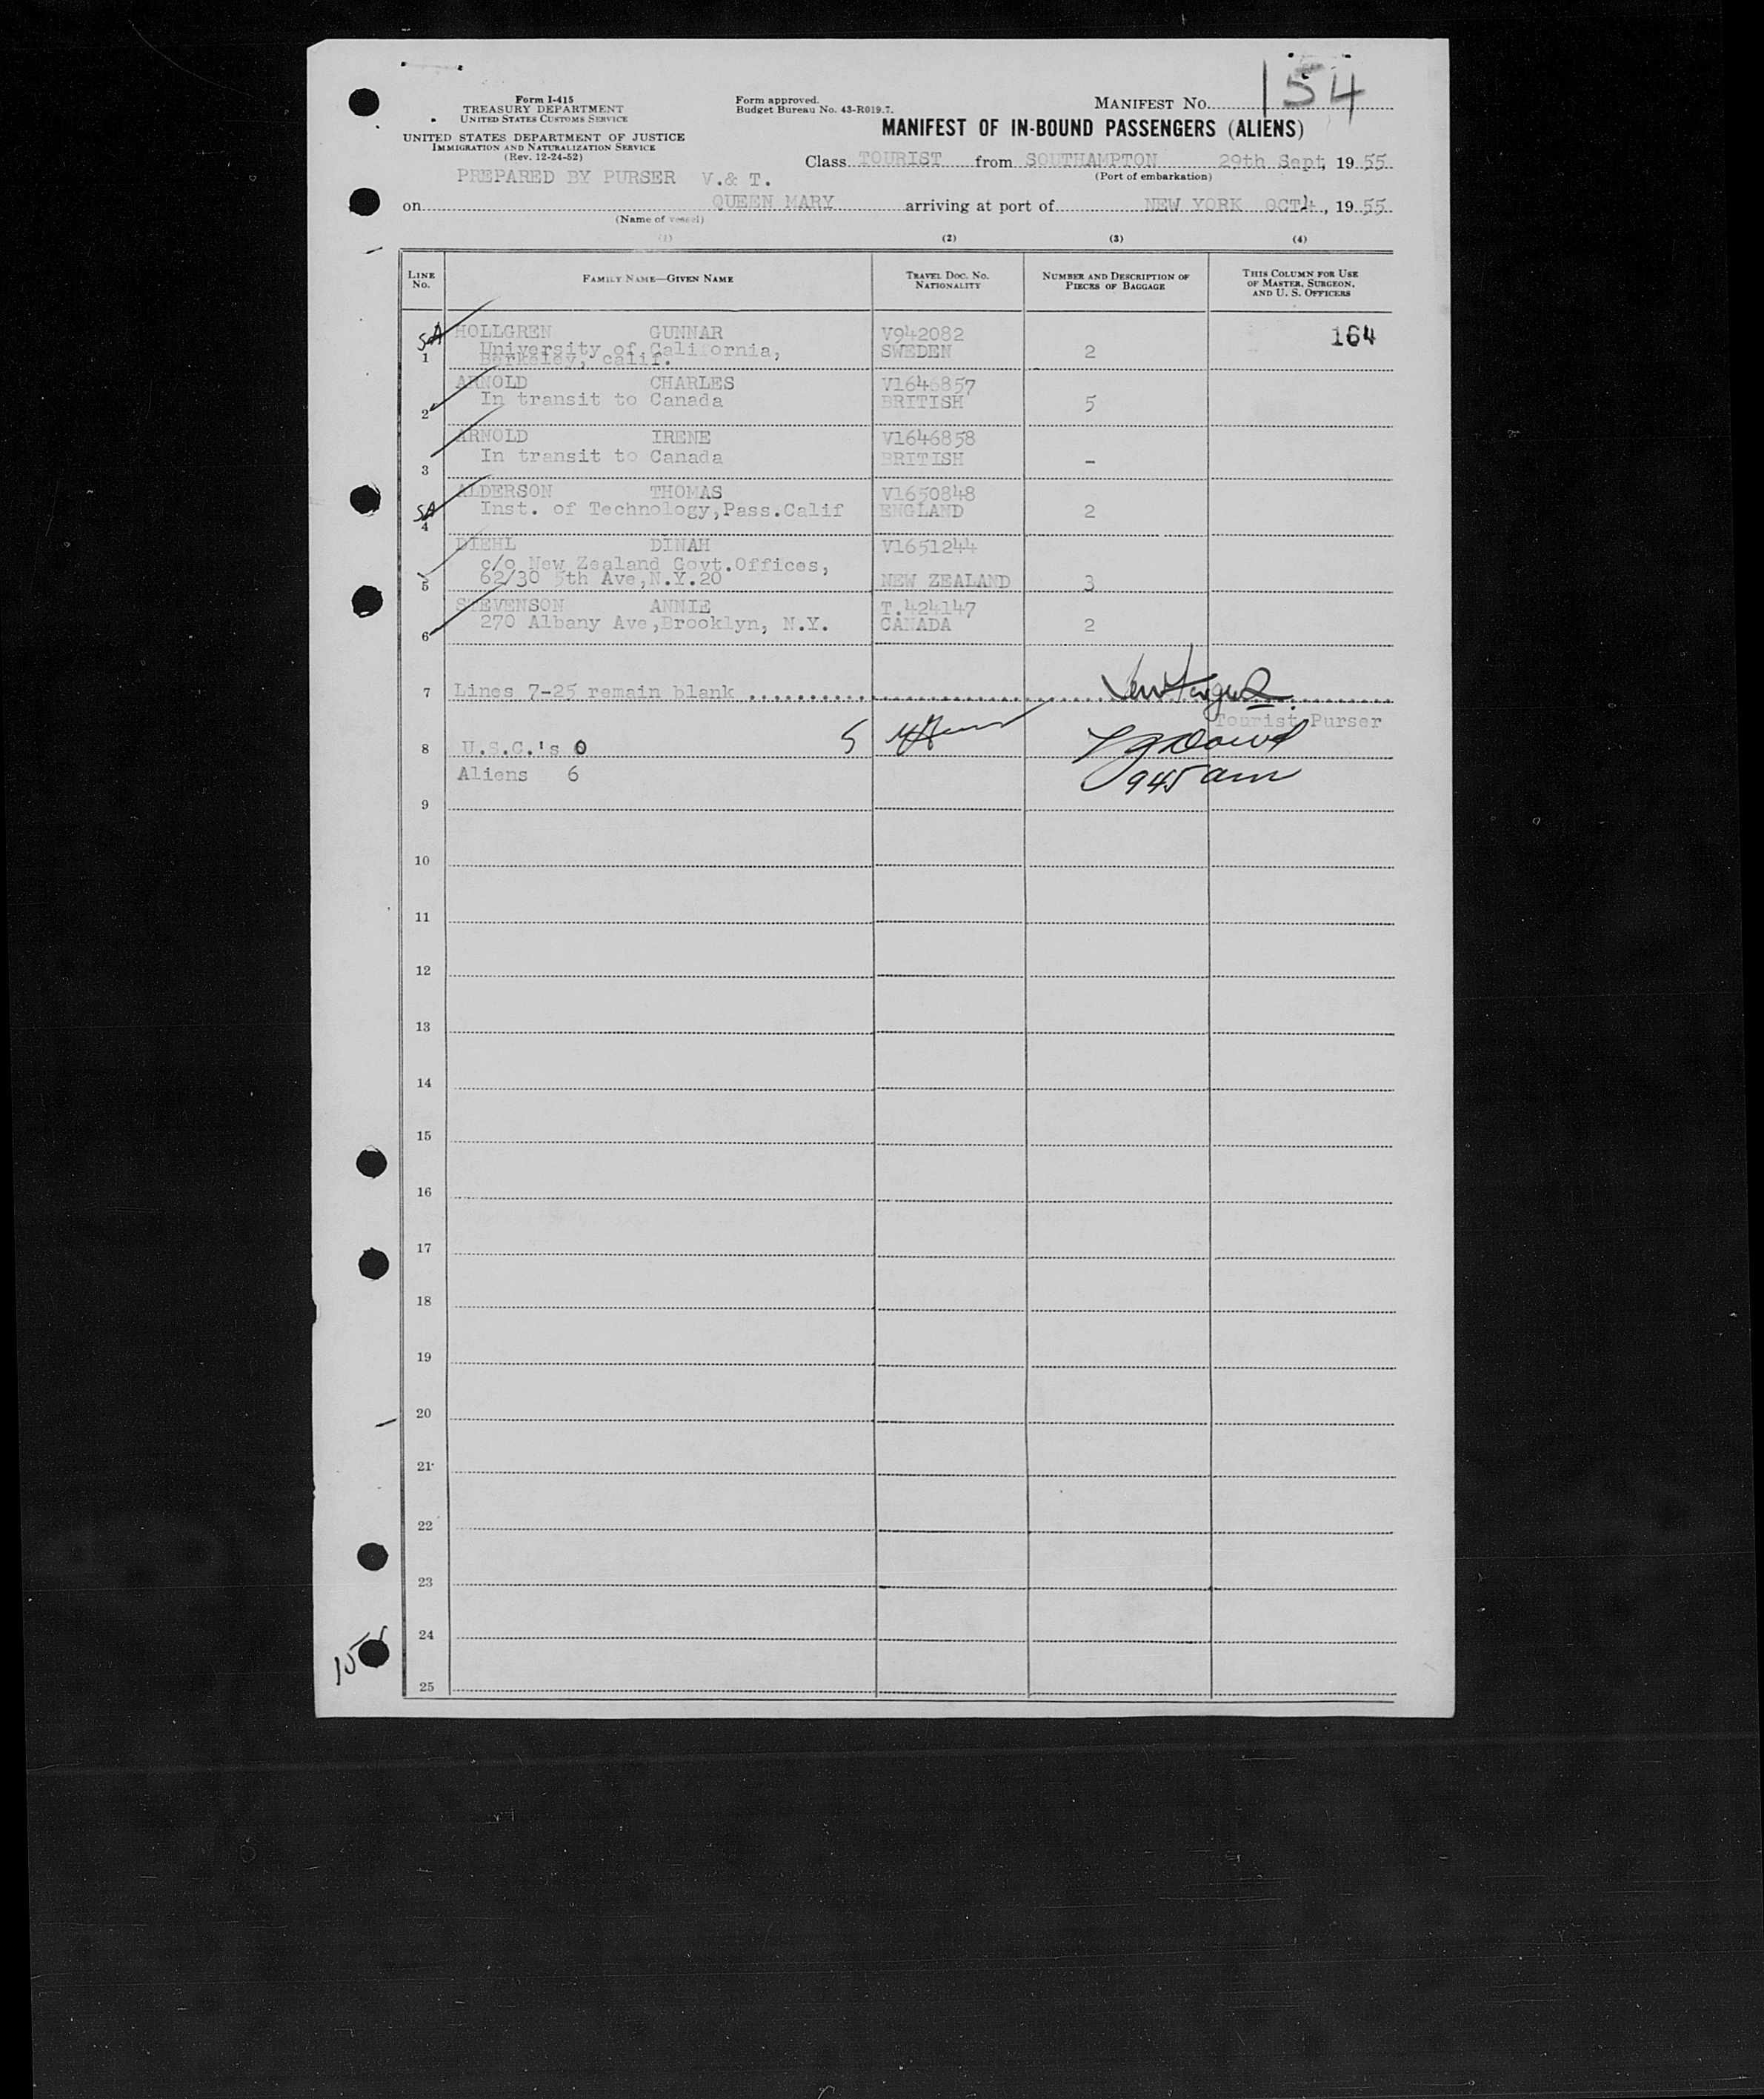 154
Form I-415
TREASURY DEPARTMENT
UNITED STATES CUSTOMS SERVICE
UNITED STATES DEPARTMENT OF JUSTICE
IMMIGRATION AND NATURALIZATION SERVICE
(Rev. 12-24-52)
Form approved.
Budget Bureau No. 43-R019.7.
MANIFEST No.
MANIFEST OF IN-BOUND PASSENGERS (ALIENS)
Class TOURIST from SOUTHAMPTON 29th Sept, 1955
(Port of embarkation)
PREPARED BY PURSER V.& T.
on QUEEN MARY arriving at port of NEW YORK OCT 4, 1955
(Name of vessel)
(1) (2) (3) (4)
LINE No. FAMILY NAME—GIVEN NAME TRAVEL DOC. NO. NATIONALITY NUMBER AND DESCRIPTION OF PIECES OF BAGGAGE THIS COLUMN FOR USE OF MASTER, SURGEON, AND U. S. OFFICERS
SA HOLLGREN GUNNAR V942082 164
1 University of California, SWEDEN 2
Berkeley, Calif.
ARNOLD CHARLES V1646857
2 In transit to Canada BRITISH 5
ARNOLD IRENE V1646858
3 In transit to Canada BRITISH -
ALDERSON THOMAS V1650848
SA 4 Inst. of Technology,Pass.Calif ENGLAND 2
DIEHL DINAH V1651244
c/o New Zealand Govt.Offices,
5 62/30 5th Ave,N.Y.20 NEW ZEALAND 3
STEVENSON ANNIE T.424147
6 270 Albany Ave,Brooklyn, N.Y. CANADA 2
7 Lines 7-25 remain blank
Tourist Purser
8 U.S.C.'s 0 5
Aliens 6 945 am
9
10
11
12
13
14
15
16
17
18
19
20
21
22
23
24
25